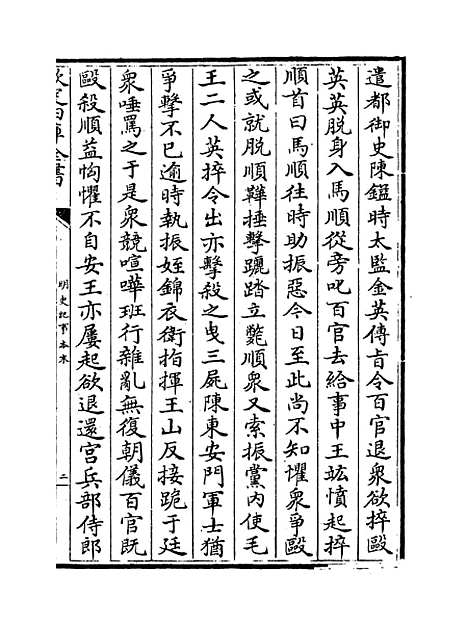 遣都御史陳鎰時太監金英傳㫖令百官退衆欲捽毆
英英脫身入馬順從旁叱百官去給事中王竑憤起捽
順首曰馬順往時助振惡今日至此尚不知懼衆爭毆
之或就脫順鞾捶擊躧踏立斃順衆又索振黨內使毛
王二人英捽令出亦擊殺之曳三屍陳東安門軍士猶
爭擊不已逾時執振姪錦衣衛指揮王山反接跪于廷
衆唾罵之于是衆競喧嘩班行雜亂無復朝儀百官既
毆殺順益恟懼不自安王亦屢起欲退還宫兵部侍郎
欽定四庫全書
明史紀事本末
二